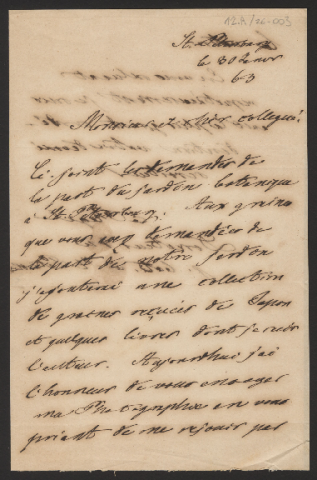 12.A/26-003
St. Petersbourg
le 30 Janvr
63
Monsieur et cher collègue!
Ci-joint les demandes de
la part du Jardin botanique
à St. Petersbourg. Aux graines
que vous avez demandées de
la part de notre Jardin
j'ajouterai une collection
de graines reçues de Japon
et quelques livres dont je suis
l'auteur. Aujourdhui j'ai
l'honneur de vous envoyer
ma Photographie en vous
priant de me rejouir par